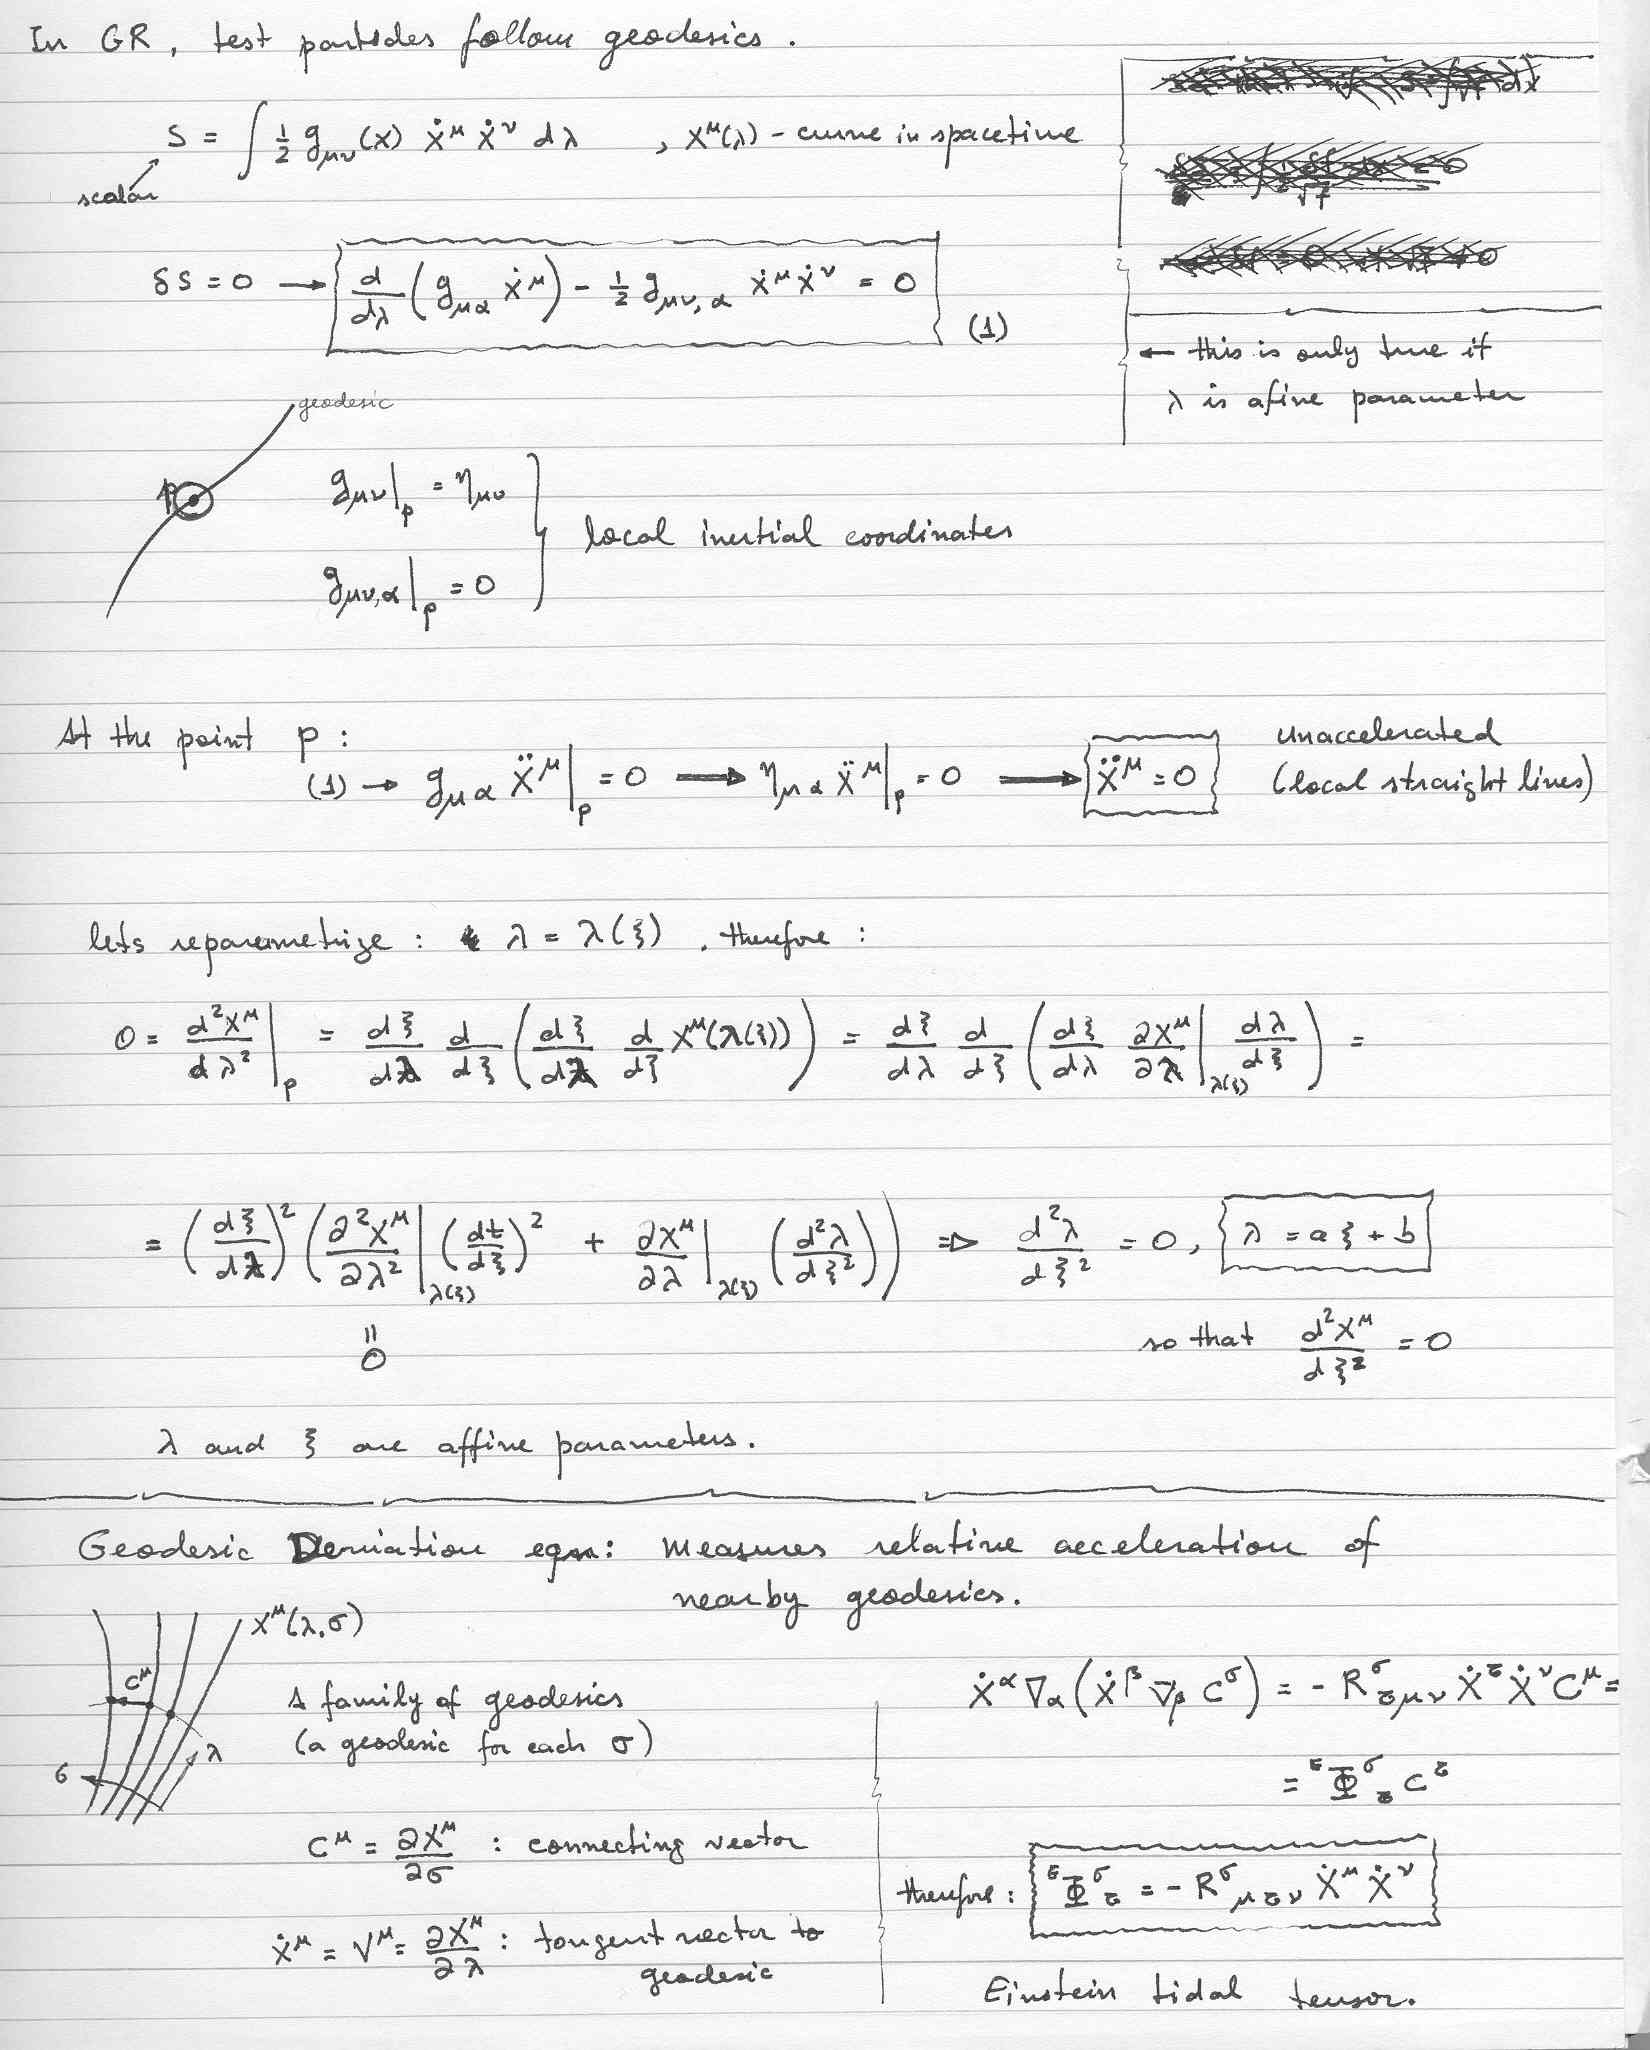 In GR, test particles follow geodesics.
S = ∫ ½ g_μν(x) ẋ^μ ẋ^ν dλ , x^μ(λ) - curve in spacetime
scalar
δS = 0 → d/dλ ( g_μα ẋ^μ ) - ½ g_μν,α ẋ^μ ẋ^ν = 0
(1)
← this is only true if
λ is afine parameter
geodesic
p
g_μν|_p = η_μν
g_μν,α|_p = 0
local inertial coordinates
At the point p :
(1) → g_μα ẍ^μ|_p = 0 → η_μα ẍ^μ|_p = 0 → ẍ^μ = 0
unaccelerated
(local straight lines)
lets reparametrize : λ = λ(ξ) . therefore :
0 = d²x^μ/dλ² |_p = dξ/dλ d/dξ ( dξ/dλ d/dξ x^μ(λ(ξ)) ) = dξ/dλ d/dξ ( dξ/dλ ∂x^μ/∂λ |_λ(ξ) dλ/dξ ) =
= (dξ/dλ)² ( ∂²x^μ/∂λ² |_λ(ξ) (dt/dξ)² + ∂x^μ/∂λ |_λ(ξ) (d²λ/dξ²) ) ⇒ d²λ/dξ² = 0, λ = aξ + b
=
0
so that d²x^μ/dξ² = 0
λ and ξ are affine parameters.
Geodesic Deviation eqn: measures relative acceleration of
nearby geodesics.
x^μ(λ,σ)
C^μ
λ
σ
A family of geodesics
(a geodesic for each σ)
C^μ = ∂x^μ/∂σ : connecting vector
ẋ^μ = V^μ = ∂x^μ/∂λ : tangent vector to
geodesic
ẋ^α ∇_α ( ẋ^β ∇_β C^σ ) = - R^σ_τμν ẋ^τ ẋ^ν C^μ =
= ^EΦ^σ_τ C^τ
therefore : ^EΦ^σ_τ = - R^σ_μτν ẋ^μ ẋ^ν
Einstein tidal tensor.